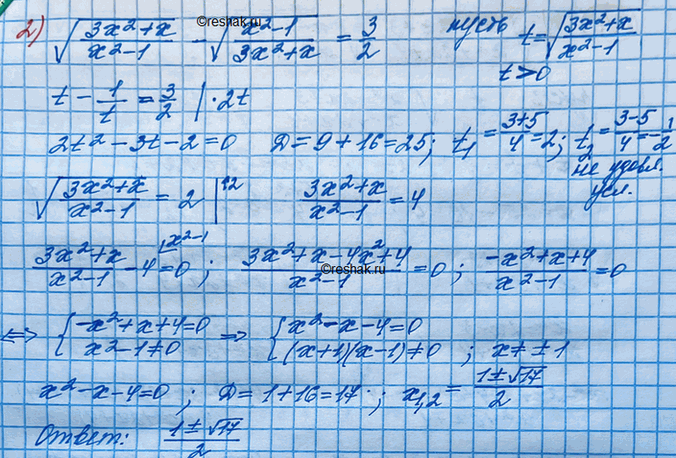 ©reshak.ru
2) √((3x²+x)/(x²-1)) - √((x²-1)/(3x²+x)) = 3/2 пусть t=√((3x²+x)/(x²-1))
t>0
t - 1/t = 3/2 | ·2t
2t² - 3t - 2 = 0 D = 9 + 16 = 25; t₁ = (3+5)/4 = 2; t₂ = (3-5)/4 = -1/2
не удовл.
усл.
√((3x²+x)/(x²-1)) = 2 |↑2 (3x²+x)/(x²-1) = 4
(3x²+x)/(x²-1) - 4 |x²-1 = 0; (3x²+x-4x²+4)/(x²-1) = 0; (-x²+x+4)/(x²-1) = 0
©reshak.ru
⇔ { -x²+x+4=0 ⇒ { x²-x-4=0
x²-1≠0 (x+1)(x-1)≠0 ; x≠±1
x²-x-4=0 ; D=1+16=17 ; x₁,₂ = (1±√17)/2
Ответ: (1±√17)/2